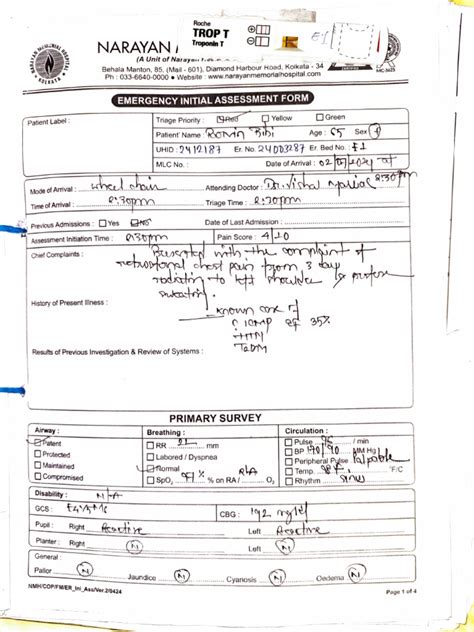 Roche
TROP T
Troponin T
NARAYAN
(A Unit of Narayan
Behala Manton, 85, (Mail - 601), Diamond Harbour Road, Kolkata - 34
Ph : 033-6640-0000 ● Website : www.narayanmemorialhospital.com
EMERGENCY INITIAL ASSESSMENT FORM
Patient Label : Triage Priority : Red Yellow Green
Patient Name : Bibi Age : 65 Sex
UHID : 2412187 Er. No. 24003287 Er. Bed No. : E1
MLC No. : Date of Arrival :
Mode of Arrival : wheel chair Attending Doctor : Dr. Vishal
Time of Arrival : 8:30pm Triage Time : 8:30pm
Previous Admissions : Yes No Date of Last Admission :
Assessment Initiation Time : 8:30pm Pain Score : 4/10
Chief Complaints : Presented with the complaint of
retrosternal chest pain from 3 day
radiating to left shoulder profuse
sweating.
History of Present Illness : known case of
EF 35%
HTN
T2DM
Results of Previous Investigation & Review of Systems :
PRIMARY SURVEY
Airway : Breathing : Circulation :
Patent RR 22 mm Pulse 95 / min
Protected Laboured / Dyspnea BP 170/90 MM Hg
Maintained Normal Peripheral Pulse Palpable
Compromised SpO₂ 97% % on RA / O₂ RA Temp. 98.F °F/C
Rhythm sinus
Disability : N-A
GCS : E4V5M6 CBG : 192 mg/dl
Pupil : Right Reactive Left Reactive
Planter : Right N Left N
General :
Pallor N Jaundice N Cyanosis N Oedema N
NMH/COP/FM/ER_Ini_Ass/Ver.2/0424 Page 1 of 4